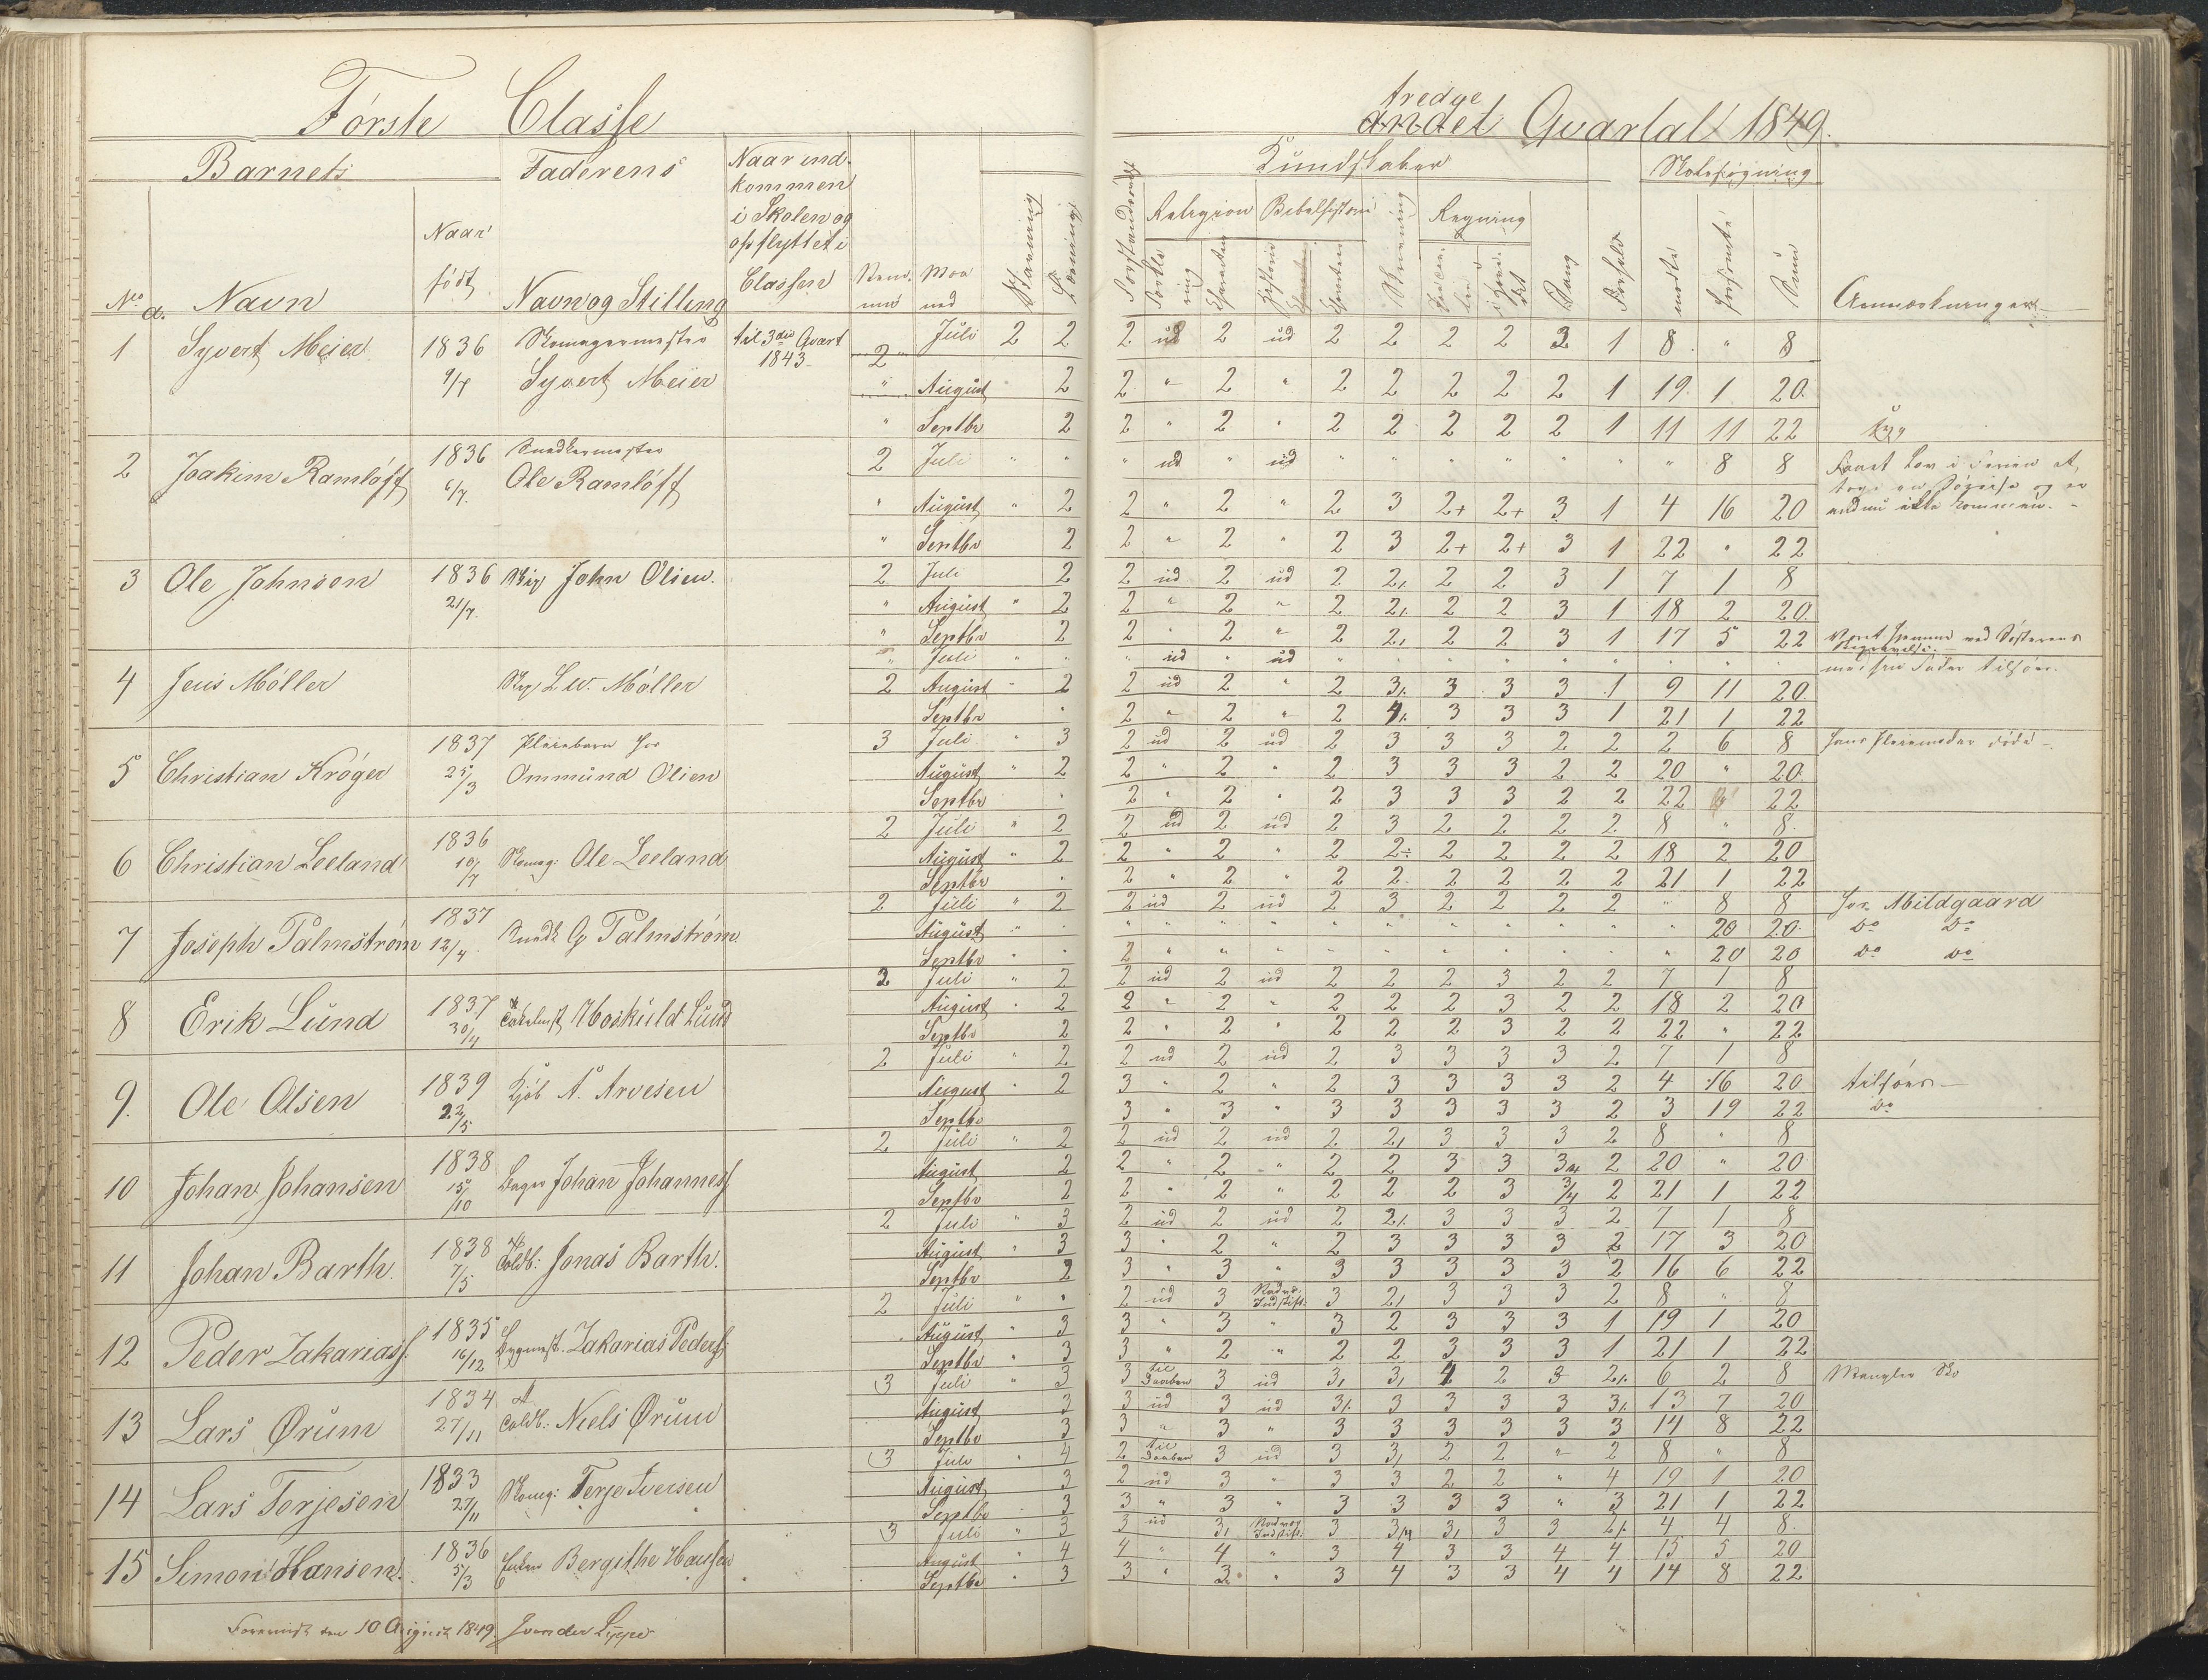 Første Classe
Barnets
Faderens
Naar ind-
kommen
i Skolen og
opflyttet i
Classen
No
a.
Navn
Naar
født
Navn og Stilling
Maa
ned
Stavning
Læsning
tredge
andet Qvartal 1849.
Kundskaber
Skolesøgning
Religion
Bibelhistorie
Regning
Skrivning
Sang
Forhold
mødte
forsømte
Sum
Anmærkninger
1 Syvert Meier 1836 9/7 Skomagermester Syvert Meier til 3die Qvart 1843
2 Juli 2 2 2 ud 2 ud 2 2 2 2 2 1 8 " 8
" August 2 2 " 2 " 2 2 2 2 2 1 19 1 20
" Septbr 2 2 " 2 " 2 2 2 2 2 1 11 11 22 syg
2 Joakim Ramløff 1836 6/7 Snedkermester Ole Ramløff
2 Juli " " " ud " ud " " " " " " " 8 8 Faaet Lov i Ferien at
" August " 2 2 " 2 " 2 3 2+ 2+ 3 1 4 16 20 endnu ikke kommen.
" Septbr 2 2 " 2 " 2 3 2+ 2+ 3 1 22 " 22
3 Ole Johnsen 1836 21/7 John Olsen
2 Juli 2 2 ud 2 ud 2 2, 2 2 3 1 7 1 8
" August " 2 2 " 2 " 2 2, 2 2 3 1 18 2 20
" Septbr 2 2 " 2 " 2 2, 2 2 3 1 17 5 22 Været hjemme ved Søsterens
Begravelse
4 Jens Möller Lw. Möller
" Juli " " " ud " ud " " " " " " " " med sin Fader tilsøes.
2 August " 2 2 ud 2 " 2 3, 3 3 3 1 9 11 20
Septbr " 2 " 2 " 2 4, 3 3 3 1 21 1 22
5 Christian Krøger 1837 25/3 Pleiebarn hos Ommund Olsen
3 Juli " 3 2 ud 2 ud 2 3 3 3 2 2 2 6 8 hans Pleiemoder døde
August " 2 2 " 2 " 2 3 3 3 2 2 20 " 20
Septbr " 2 " 2 " 2 3 3 3 2 2 22 " 22
6 Christian Leeland 1836 10/7 Skomag: Ole Leeland
2 Juli " 2 2 ud 2 ud 2 3 2 2 2 2 8 " 8
August " 2 2 " 2 " 2 2÷ 2 2 2 2 18 2 20
Septbr " 2 " 2 " 2 2 2 2 2 2 21 1 22
7 Joseph Palmstrøm 1837 12/4 Snedk G Palmstrøm
2 Juli " 2 2 ud 2 ud 2 3 2 2 2 2 " 8 8 hos Mildgaard
August " " " " " " " " " " " " " 20 20 Do Do
Septbr " " 2 " " " " " " " " " " 20 20 Do Do
8 Erik Lund 1837 30/4 Hoskuld Lund
2 Juli " 2 2 ud 2 ud 2 2 2 3 2 2 7 1 8
August " 2 2 " 2 " 2 2 2 3 2 2 18 2 20
Septbr 2 2 " 2 " 2 2 2 3 2 2 22 " 22
9. Ole Olsen 1839 22/5 Kjøb A. Arvesen
2 Juli " 2 2 ud 2 ud 2 3 3 3 3 2 7 1 8
August " 2 3 " 2 " 2 3 3 3 3 2 4 16 20 tilsøes
Septbr 3 " 3 " 3 3 3 3 3 2 3 19 22 Do
10 Johan Johansen 1838 15/10 Bager Johan Johannesf
2 Juli " 2 2 ud 2 ud 2 2, 3 3 3 2 8 " 8
August 2 2 " 2 " 2 2 3 3 3/4 2 20 " 20
Septbr 2 2 " 2 " 2 2 2 3 3/4 2 21 1 22
11 Johan Barth 1838 7/5 Toldb: Jonas Barth.
2 Juli " 3 2 ud 2 ud 2 2, 3 3 3 2 7 1 8
August " 3 3 " 2 " 2 3 3 3 3 2 17 3 20
Septbr 2 3 " 3 " 3 3 3 3 3 2 16 6 22
12 Peder Zakariasf. 1835 16/12 Bygmest. Zakarias Pedersf
2 Juli " " 2 ud 3 3 2, 3 3 3 2 8 " 8
August " 3 3 " 3 " 3 2 3 3 3 1 19 1 20
Septbr " 3 3 " 2 " 2 2 3 3 3 1 21 1 22
13 Lars Ørum 1834 27/11 Toldb: Niels Ørum
3 Juli " 3 3 til Daaben 3 ud 3, 3, 4 2 3 2, 6 2 8 Mangler Sko
August 3 3 ud 3 ud 3, 3 3 3 3 3, 13 7 20
Septbr 3 3 " 3 " 3 3 3 3 3 3 14 8 22
14 Lars Terjesen 1833 27/11 Skomg: Terje Iversen
3 Juli " 4 2 til Daaben 3 ud 3 3, 2 2 " 2 8 " 8
August 3 2 ud 3 " 3 3 2 2 " 4 19 1 20
Septbr 3 3 " 3 " 3 3 3 3 " 3 21 1 22
15 Simon Hansen. 1836 5/3 Enken Bergithe Hansen
3 Juli " 3 3 ud 3, 3 3/4 3, 3 3 2, 4 4 8
August " 4 4 " 4 " 3 4 3 3 4 4 15 5 20
Septbr " 3 3 " 3 " 3 4 3 3 4 4 14 8 22
den 10 August 1849. J von der Lippe